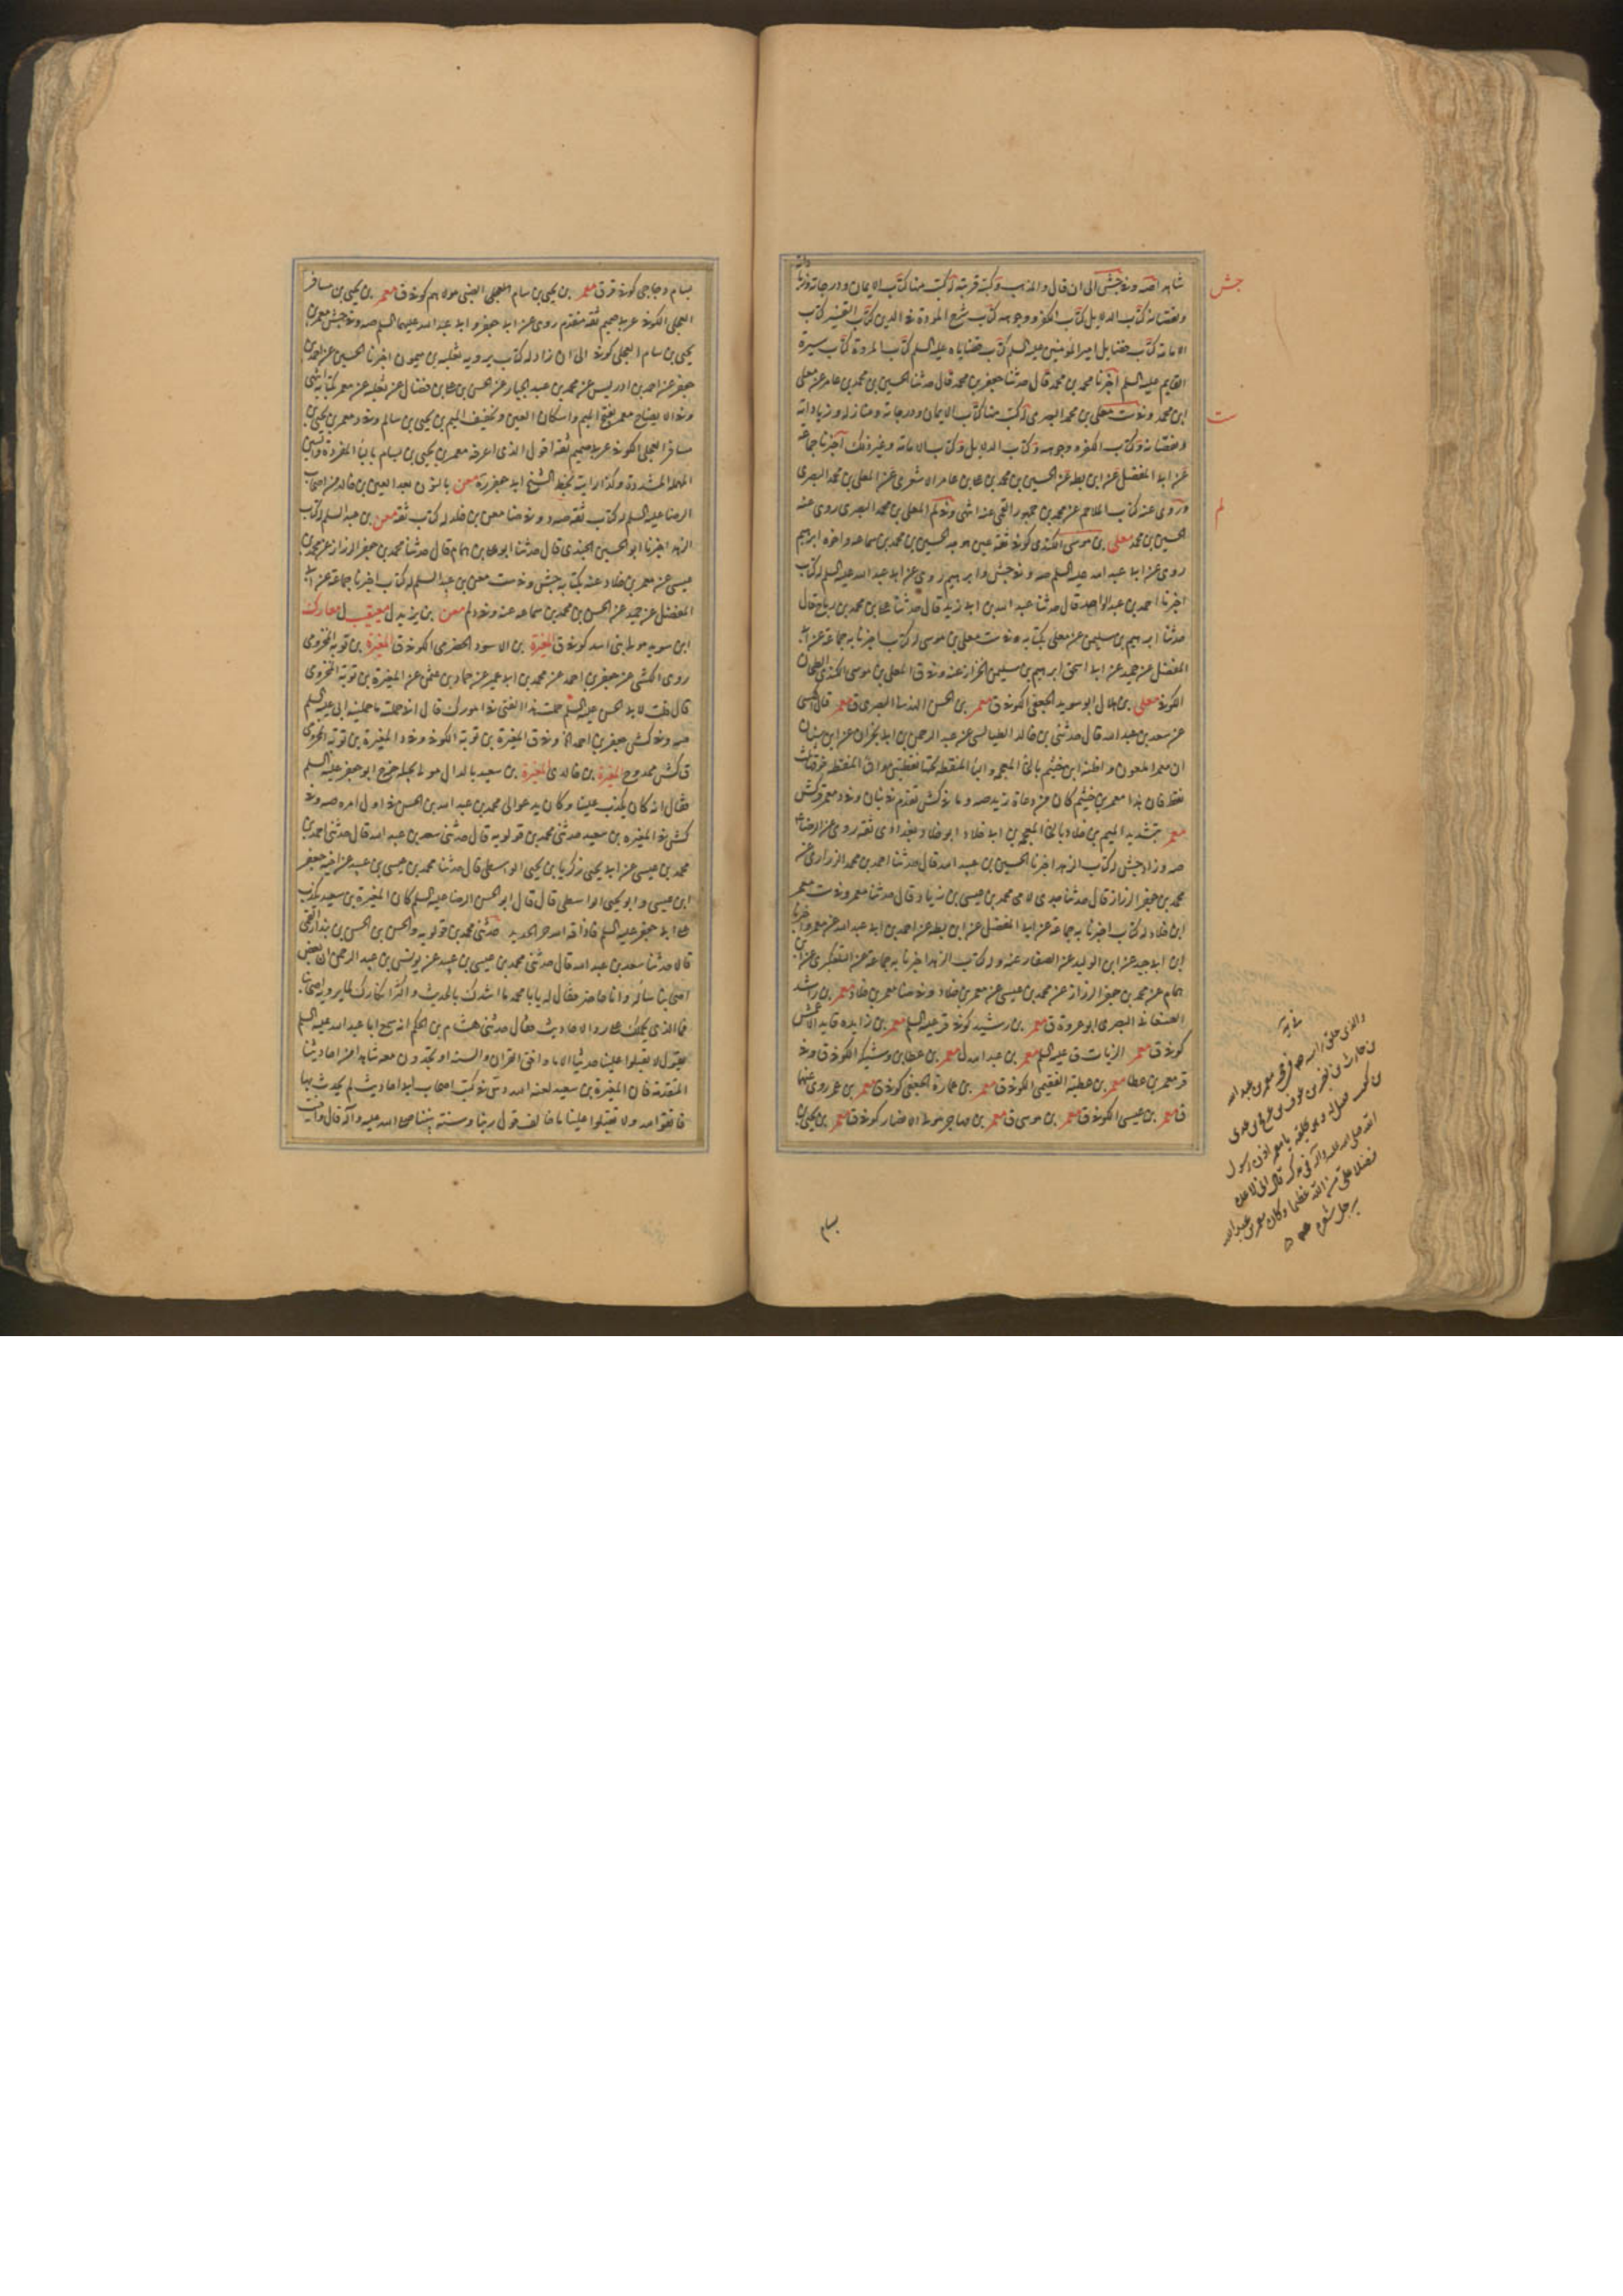 شاهدا صه وفي جش الى ان قال والمذهب وكتبه قريبة له كتب منها كتاب الايمان ودرجاته وزيادته
ونقصانه كتاب الدلايل كتاب الكفر ووجوهه كتاب شرح المودة في الدين كتاب التفسير كتاب
الامامة كتاب فضايل امير المؤمنين عليه السلم كتاب قضاياه عليه السلم كتاب المروة كتاب سيرة
القايم عليه السلم اخبرنا محمد بن محمد قال حدثنا جعفر بن محمد قال حدثنا الحسين بن محمد بن عامر عن معلى
ابن محمد وفي ست معلى بن محمد البصري له كتب منها كتاب الايمان ودرجاته ومنازله وزياداته
ونقصانه وكتاب الكفر ووجوهه وكتاب الدلايل وكتاب الامامة وغير ذلك اخبرنا جماعة
عن ابي المفضل عن ابن بطة عن الحسين بن محمد بن عامر الاشعري عن المعلى بن محمد البصري
وروى عنه كتاب الملاحم عن محمد بن جمهور القمي عنه انتهى وفي لم المعلى بن محمد البصري روى عنه
الحسين بن محمد معلى بن موسى الكندي كوفي ثقة عين هو جد الحسن بن محمد بن سماعة واخوه ابرهيم
روى عن ابي عبد الله عليه السلم صه وفي جش وابرهيم روى عن ابي عبد الله عليه السلم له كتاب
اخبرنا احمد بن عبد الواحد قال حدثنا عبيد الله بن ابي زيد قال حدثنا علي بن محمد بن رباح قال
حدثنا ابرهيم بن سليمن عن معلى بكتابه وفي ست معلى بن موسى له كتاب اخبرنا به جماعة عن ابي
المفضل عن حميد عن ابي اسحق ابرهيم بن سليمن الخزاز عنه وفي ق المعلى بن موسى الكندي الطحان
الكوفي معلى بن هلال ابو سويد الجعفي الكوفي ق معمر بن الحسن الهذلي البصري ق معمر قال الكشي
عن سعد بن عبد الله قال حدثني بن خالد الطيالسي عن عبد الرحمن بن ابي نجران عن ابن سنان
معمر بتشديد الميم بن خلاد بالخاء المعجمة بن ابي خلاد ابو خلاد بغدادي ثقة روى عن الرضا ع
صه وزاد جش له كتاب الزهد اخبرنا الحسين بن عبيد الله قال حدثنا احمد بن محمد الزراري عن
محمد بن جعفر الرزاز قال حدثنا محمد بن عيسى بن زياد قال حدثنا معمر وفي ست معمر
ابن خلاد له كتاب اخبرنا به جماعة عن ابي المفضل عن ابن بطة عن احمد بن ابي عبد الله عن معمر واخبرنا
ابن ابي جيد عن ابن الوليد عن الصفار عنه وله كتاب الزهد اخبرنا به جماعة عن التلعكبري عن ابن
همام عن محمد بن جعفر الرزاز عن محمد بن عيسى عن معمر بن خلاد وفي ضا معمر بن خلاد معمر بن راشد
الصنعاني البصري ابو عروة ق معمر بن رشيد كوفي قر عليه السلم معمر بن زايدة قايد الاعمش
كوفي ق معمر الزيات ق عليه السلم معمر بن عبد الله ل معمر بن عطا بن وشيكة الكوفي ق وفي
قر معمر بن عطا معمر بن عطية الفقيمي الكوفي ق معمر بن عمارة الجعفي كوفي ق معمر بن عمر روى عنهما
ق معمر بن عيسى الكوفي ق معمر بن موسى ق معمر بن مهاجر مولى الانصار كوفي ق معمر بن يحيى بن
بسام
جش
ست
لم
بسام دجاجي كوفي قر ق معمر بن يحيى بن سام العجلي الضبي مولاهم كوفي ق معمر بن يحيى بن مسافر
العجلي الكوفي عربي صميم ثقة متقدم روى عن ابي جعفر وابي عبد الله عليهما السلم صه وفي جش معمر بن
يحيى بن سام العجلي كوفي الى ان زاد له كتاب يرويه ثعلبة بن ميمون اخبرنا الحسين عن احمد بن
جعفر عن احمد بن ادريس عن محمد بن عبد الجبار عن الحسن بن علي بن فضال عن ثعلبة عن معمر بكتابه انتهى
وفي الايضاح معمر بفتح الميم واسكان العين وتخفيف الميم بن يحيى بن سالم وفي د معمر بن يحيى بن
مسافر العجلي الكوفي عربي صميم ثقة اقول الذي اعرفه معمر بن يحيى بن بسام بالباء المفردة والسين
المهملة المشددة وكذا رايته بخط الشيخ ابي جعفر ره معن بالنون بعد العين بن خالد من اصحاب
الرضا عليه السلم له كتاب ثقة صه د وفي ضا معن بن خلد له كتاب ثقة معن بن عبد السلم له كتاب
الزهد اخبرنا ابو الحسين الجندي قال حدثنا ابو علي بن همام قال حدثنا محمد بن جعفر الرزاز عن محمد بن
عيسى عن معمر بن خلاد عنه بكتابه جش وفي ست معن بن عبد السلم له كتاب اخبرنا جماعة عن ابي
المفضل عن حميد عن الحسن بن محمد بن سماعة عنه وفي د لم معن بن يزيد ل معيقيب ل معارك
ابن سويد مولى بني اسد كوفي ق المغيرة بن الاسود الحضرمي الكوفي ق المغيرة بن توبة المخزومي
روى الكشي عن جعفر بن احمد عن محمد بن ابي عمير عن حماد بن عثمن عن المغيرة بن توبة المخزومي
قال قلت لابي الحسن عليه السلم حملت هذا الفتى في امورك قال اني حملته ما حملنيه ابي عليه السلم
صه وفي كش جعفر بن احمد الخ وفي ق المغيرة بن توبة الكوفي وفي د المغيرة بن توبة المخزومي
ق كش ممدوح المغيرة بن خالد ي المغيرة بن سعيد بالدال مولى بجيلة خرج ابو جعفر عليه السلم
فقال انه كان يكذب علينا وكان يدعو الى محمد بن عبد الله بن الحسن في اول امره صه وفي
كش في المغيرة بن سعيد حدثني محمد بن قولويه قال حدثني سعد بن عبد الله قال حدثني احمد بن
محمد بن عيسى عن ابي يحيى زكريا بن يحيى الواسطي قال حدثنا محمد بن عيسى بن عبيد عن اخيه جعفر
ابن عيسى وابو يحيى الواسطي قال قال ابو الحسن الرضا عليه السلم كان المغيرة بن سعيد يكذب
على ابي جعفر عليه السلم فاذاقه الله حر الحديد حدثني محمد بن قولويه والحسين بن الحسن بن بندار القمي
قالا حدثنا سعد بن عبد الله قال حدثني محمد بن عيسى بن عبيد عن يونس بن عبد الرحمن ان بعض
اصحابنا ساله وانا حاضر فقال له يا با محمد ما اشدك بالحديث واكثر انكارك لما يرويه اصحابنا
فما الذي يحملك على رد الاحاديث فقال حدثني هشام بن الحكم انه سمع ابا عبد الله عليه السلم
يقول لا تقبلوا علينا حديثا الا ما وافق القران والسنة او تجدون معه شاهدا من احاديثنا
المتقدمة فان المغيرة بن سعيد لعنه الله دس في كتب اصحاب ابي احاديث لم يحدث بها
فاتقوا الله ولا تقبلوا علينا ما خالف قول ربنا وسنة نبينا صلى الله عليه وآله قال وافيت